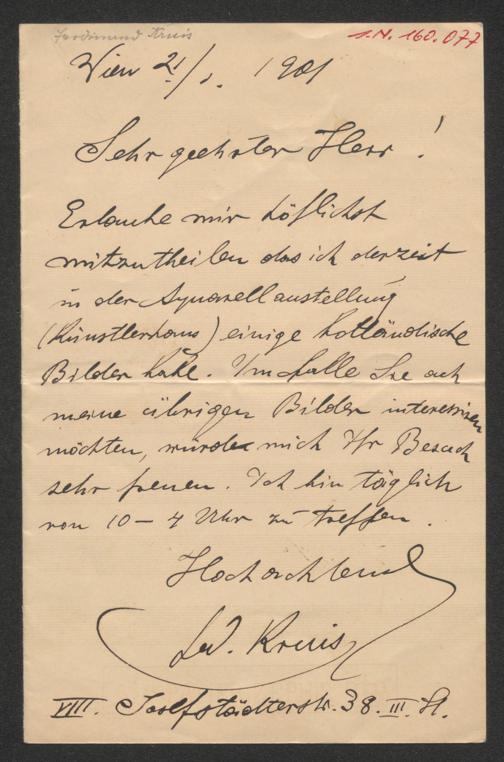 Ferdinand Kruis
I.N. 160.077
Wien 21/1. 1901
Sehr geehrter Herr !
Erlaube mir höflichst
mitzutheilen das ich derzeit
in der Aquarellaustellung
(Künstlerhaus) einige holländische
Bilder habe. Im falle Sie auch
meine übrigen Bilder interessiren
möchten, würde mich Ihr Besuch
sehr freuen. Ich bin täglich
von 10 – 4 Uhr zu treffen.
Hochachtend
Fd. Kruis
VIII. Josefstädterstr. 38. III. St.